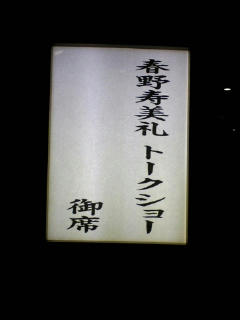 春野寿美礼 トークショー
御席